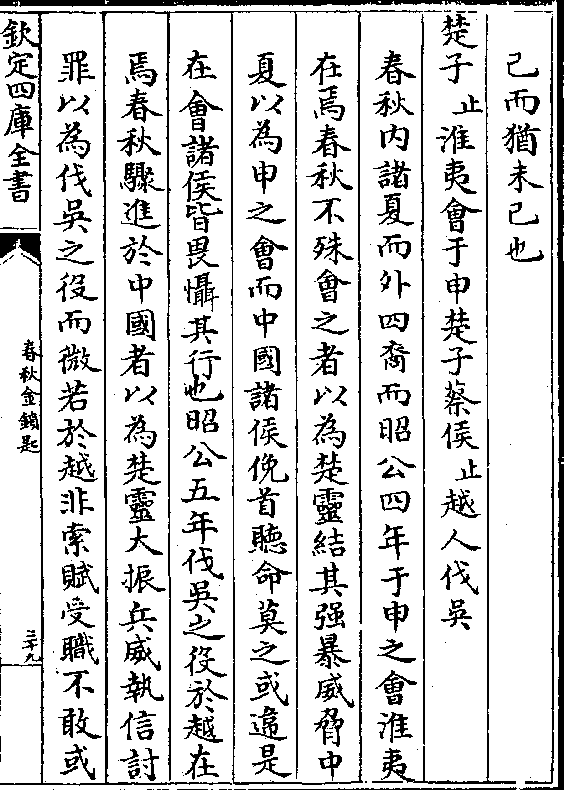 己而猶未己也
楚子止淮夷會于申楚子蔡侯止越人伐吳
春秋内諸夏而外四裔而昭公四年于申之會淮夷
在焉春秋不殊會之者以為楚靈結其强暴威脅中
夏以為申之會而中國諸侯俛首聽命莫之或違是
在會諸侯皆畏懾其行也昭公五年伐吳之役於越在
焉春秋驟進於中國者以為楚靈大振兵威執信討
罪以為伐吳之役而微若於越非索賦受職不敢或
欽定四庫全書
春秋金鎖匙
三十九